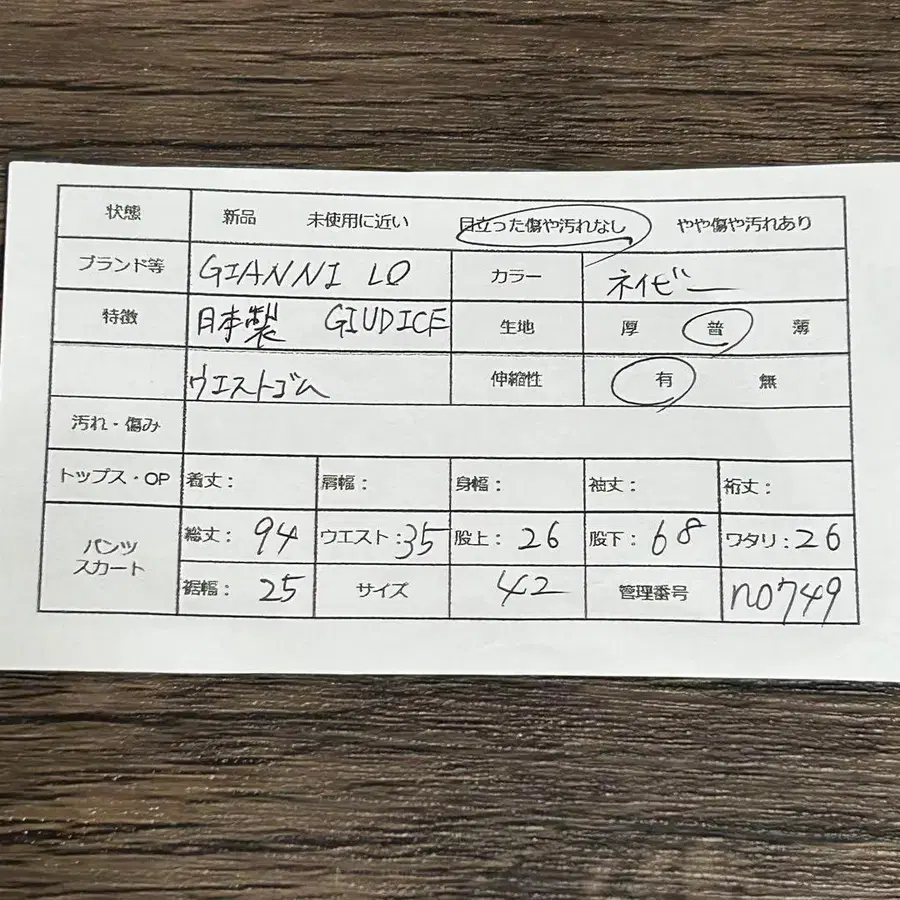 状態 新品 未使用に近い 目立った傷や汚れなし やや傷や汚れあり
ブランド等 GIANNI LO カラー ネイビー
特徴 日本製 GIUDICE 生地 厚 普 薄
ウエストゴム 伸縮性 有 無
汚れ・傷み
トップス・OP 着丈: 肩幅: 身幅: 袖丈: 裄丈:
パンツ スカート 総丈: 94 ウエスト:35 股上: 26 股下: 68 ワタリ:26
裾幅: 25 サイズ 42 管理番号 no749